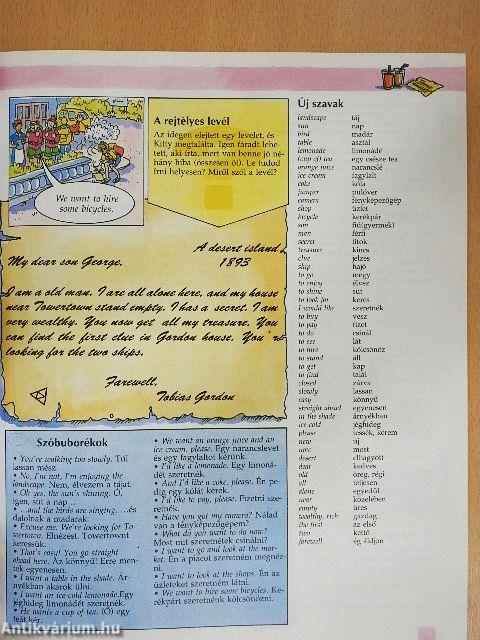 We want to hire
some bicycles.
A rejtélyes levél
Az idegen elejtett egy levelet, és
Kitty megtalálta. Igen fáradt lehe-
tett, aki írta, mert van benne jó né-
hány hiba (összesen öt). Le tudod
írni helyesen? Miről szól a levél?
A desert island,
1893
My dear son George,
I am a old man. I are all alone here, and my house
near Towertown stand empty. I has a secret. I am
very wealthy. You now get all my treasure. You
can find the first clue in Gordon house. You're
looking for the two ships.
Farewell,
Tobias Gordon
Szóbuborékok
• You're walking too slowly. Túl
lassan mész.
• No, I'm not, I'm enjoying the
landscape. Nem, élvezem a tájat.
• Oh yes, the sun's shining. Ó,
igen, süt a nap...
• ...and the birds are singing. ...és
dalolnak a madarak.
• Excuse me. We're looking for To-
wertown. Elnézést. Towertownt
keressük.
• That's easy! You go straight
ahead here. Az könnyű! Erre men-
jetek egyenesen.
• I want a table in the shade. Ár-
nyékban akarok ülni.
• I want an ice-cold lemonade. Egy
jéghideg limonádét szeretnék.
• He wants a cup of tea. (Ő) egy
teát kér.
• We want an orange juice and an
ice cream, please. Egy narancslevet
és egy fagylaltot kérünk.
• I'd like a lemonade. Egy limoná-
dét szeretnék.
• And I'd like a coke, please. Én pe-
dig egy kólát kérek.
• I'd like to pay, please. Fizetni szeret-
nék.
• Have you got my camera? Nálad
van a fényképezőgépem?
• What do you want to do now?
Most mit szeretnélek csinálni?
• I want to go and look at the mar-
ket. Én a piacot szeretném megnéz-
ni.
• I want to look at the shops. Én az
üzleteket szeretném látni.
• We want to hire some bicycles. Ke-
rékpárt szeretnénk kölcsönözni.
Új szavak
landscape táj
sun nap
bird madár
table asztal
lemonade limonádé
(cup of) tea egy csésze tea
orange juice narancslé
ice cream fagylalt
coke kóla
jumper pulóver
camera fényképezőgép
shop üzlet
bicycle kerékpár
son fiú(gyermek)
man férfi
secret titok
treasure kincs
clue jelzés
ship hajó
to go megy
to enjoy élvez
to shine süt
to look for keres
I would like szeretnék
to buy vesz
to pay fizet
to do csinál
to see lát
to hire kölcsönöz
to stand áll
to get kap
to find talál
closed zárva
slowly lassan
easy könnyű
straight ahead egyenesen
in the shade árnyékban
ice-cold jéghideg
please tessék, kérem
new új
now most
desert elhagyott
dear kedves
old öreg, régi
all teljesen
alone egyedül
near közelében
empty üres
wealthy, rich gazdag
the first az első
two kettő
farewell ég áldjon
Antikvárium.hu